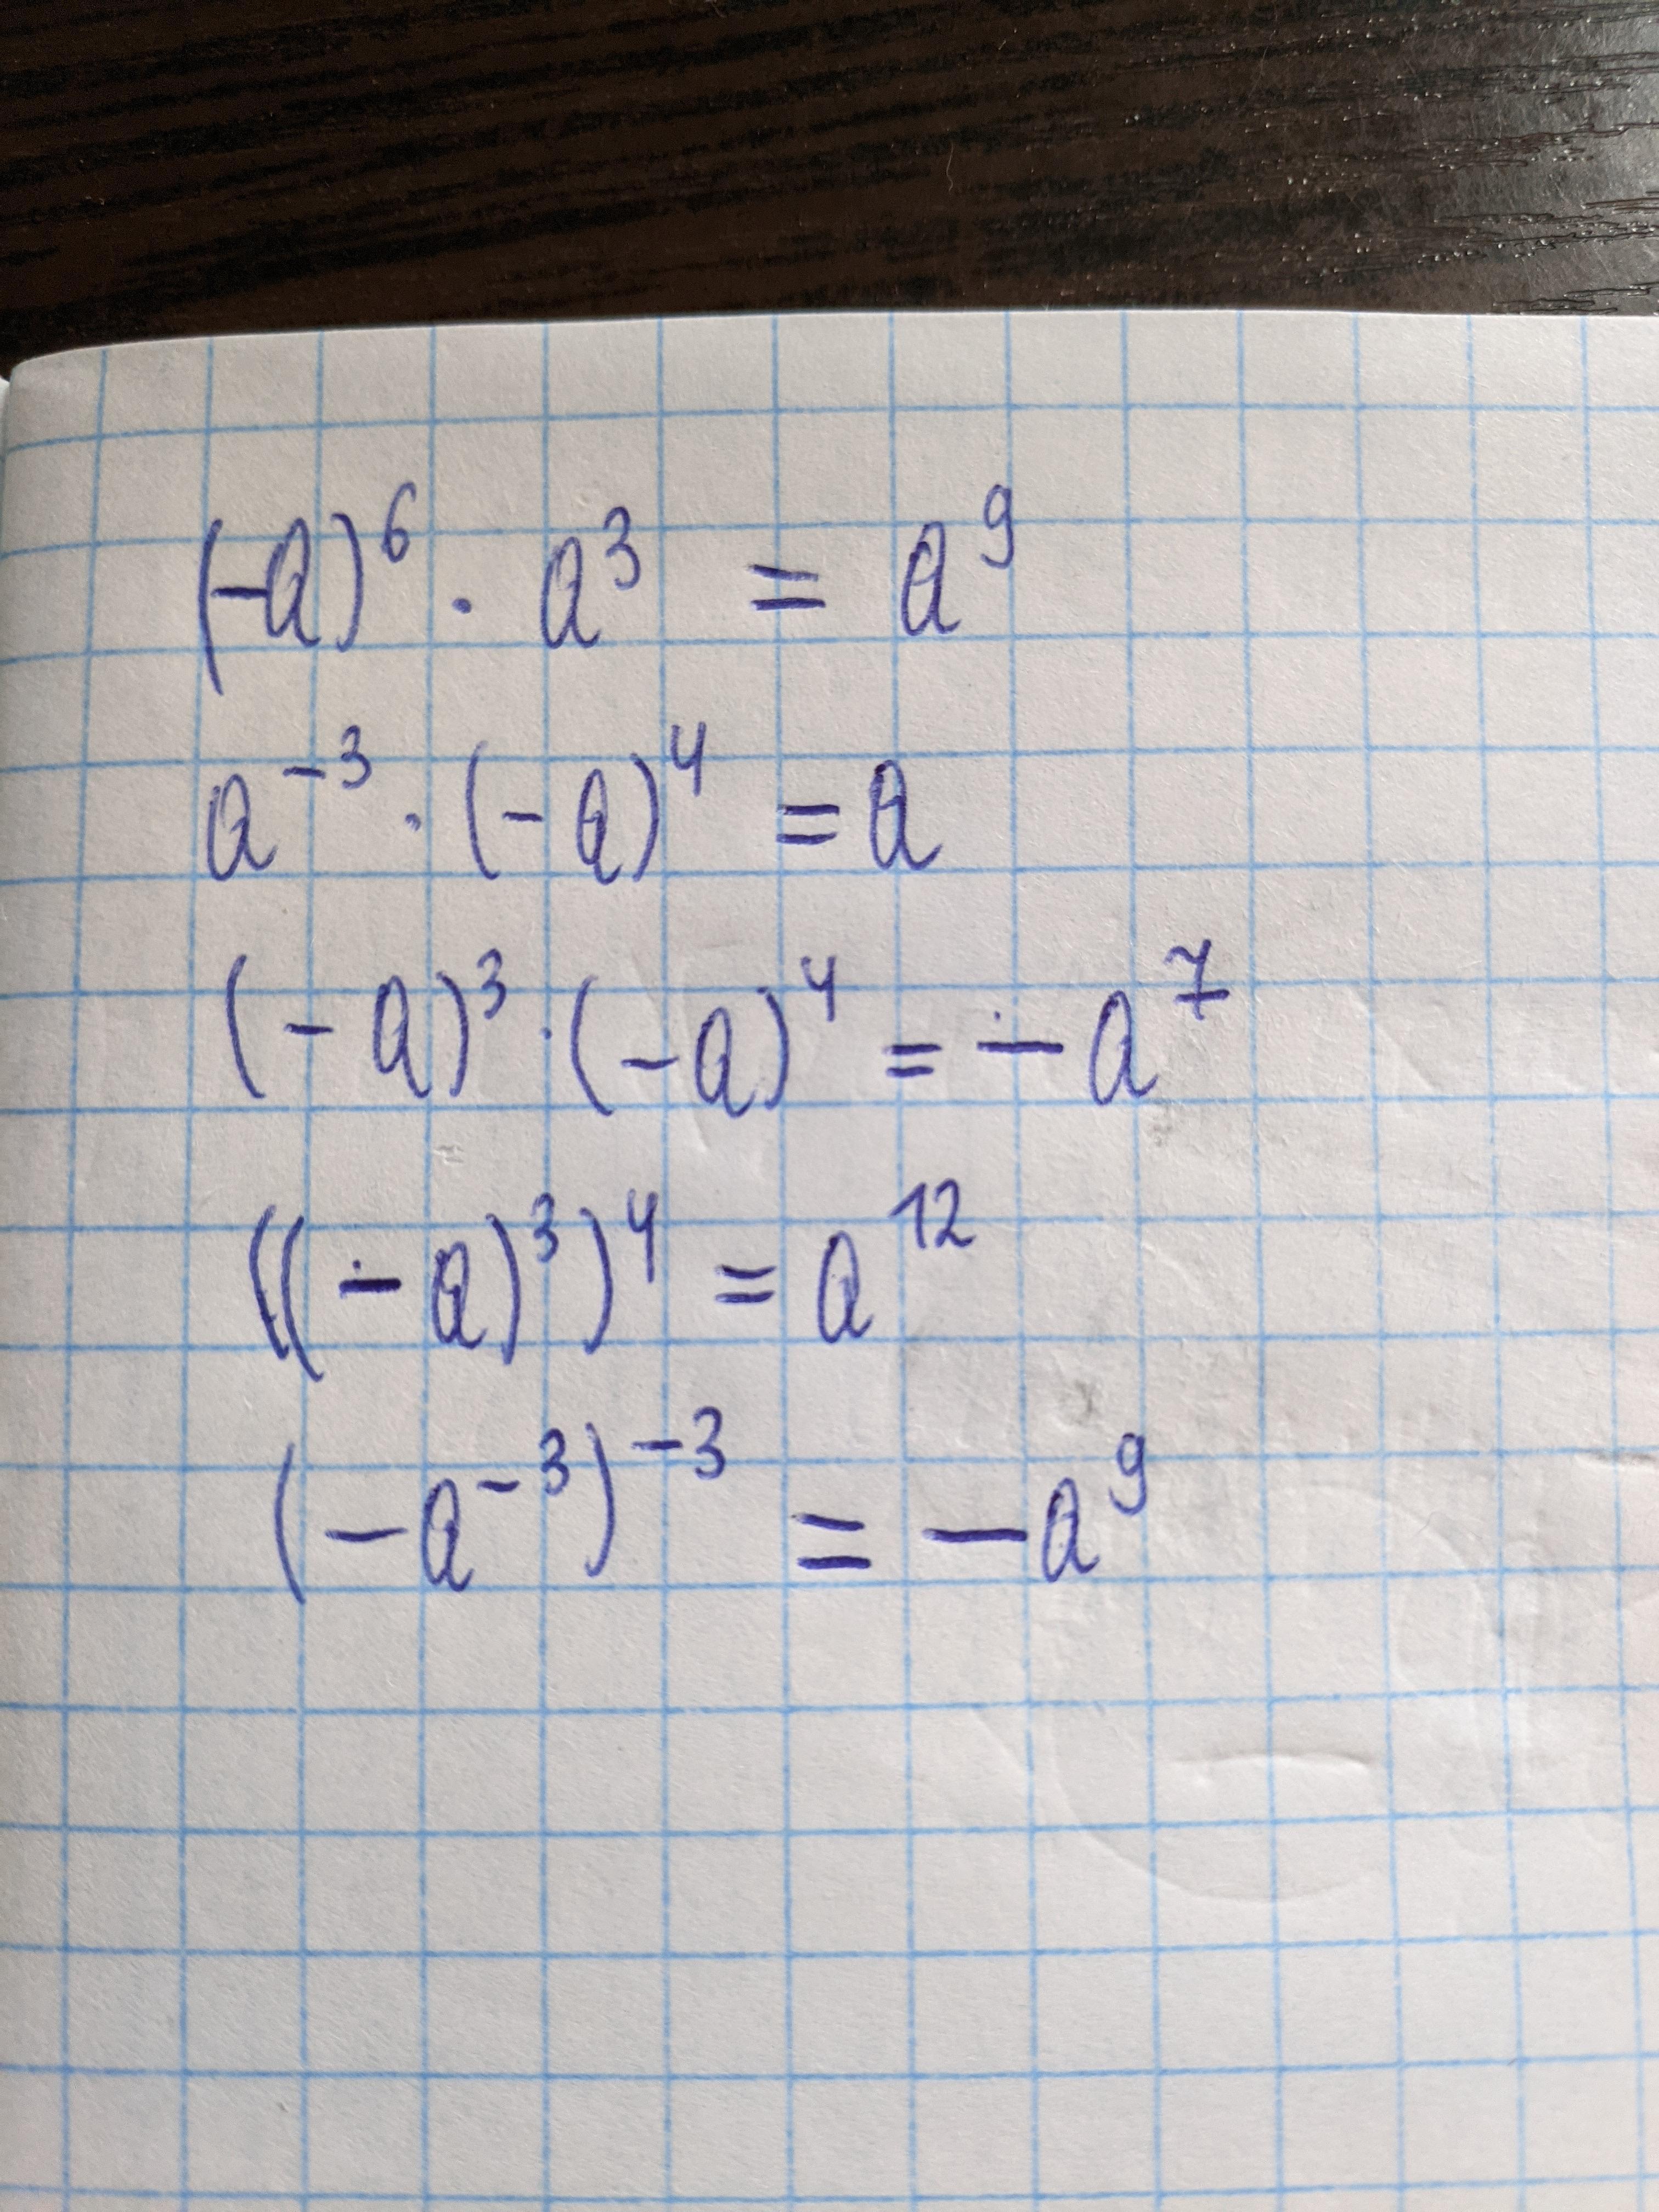 (-a)⁶ · a³ = a⁹
a⁻³ · (-a)⁴ = a
(-a)³ · (-a)⁴ = -a⁷
((-a)³)⁴ = a¹²
(-a⁻³)⁻³ = -a⁹